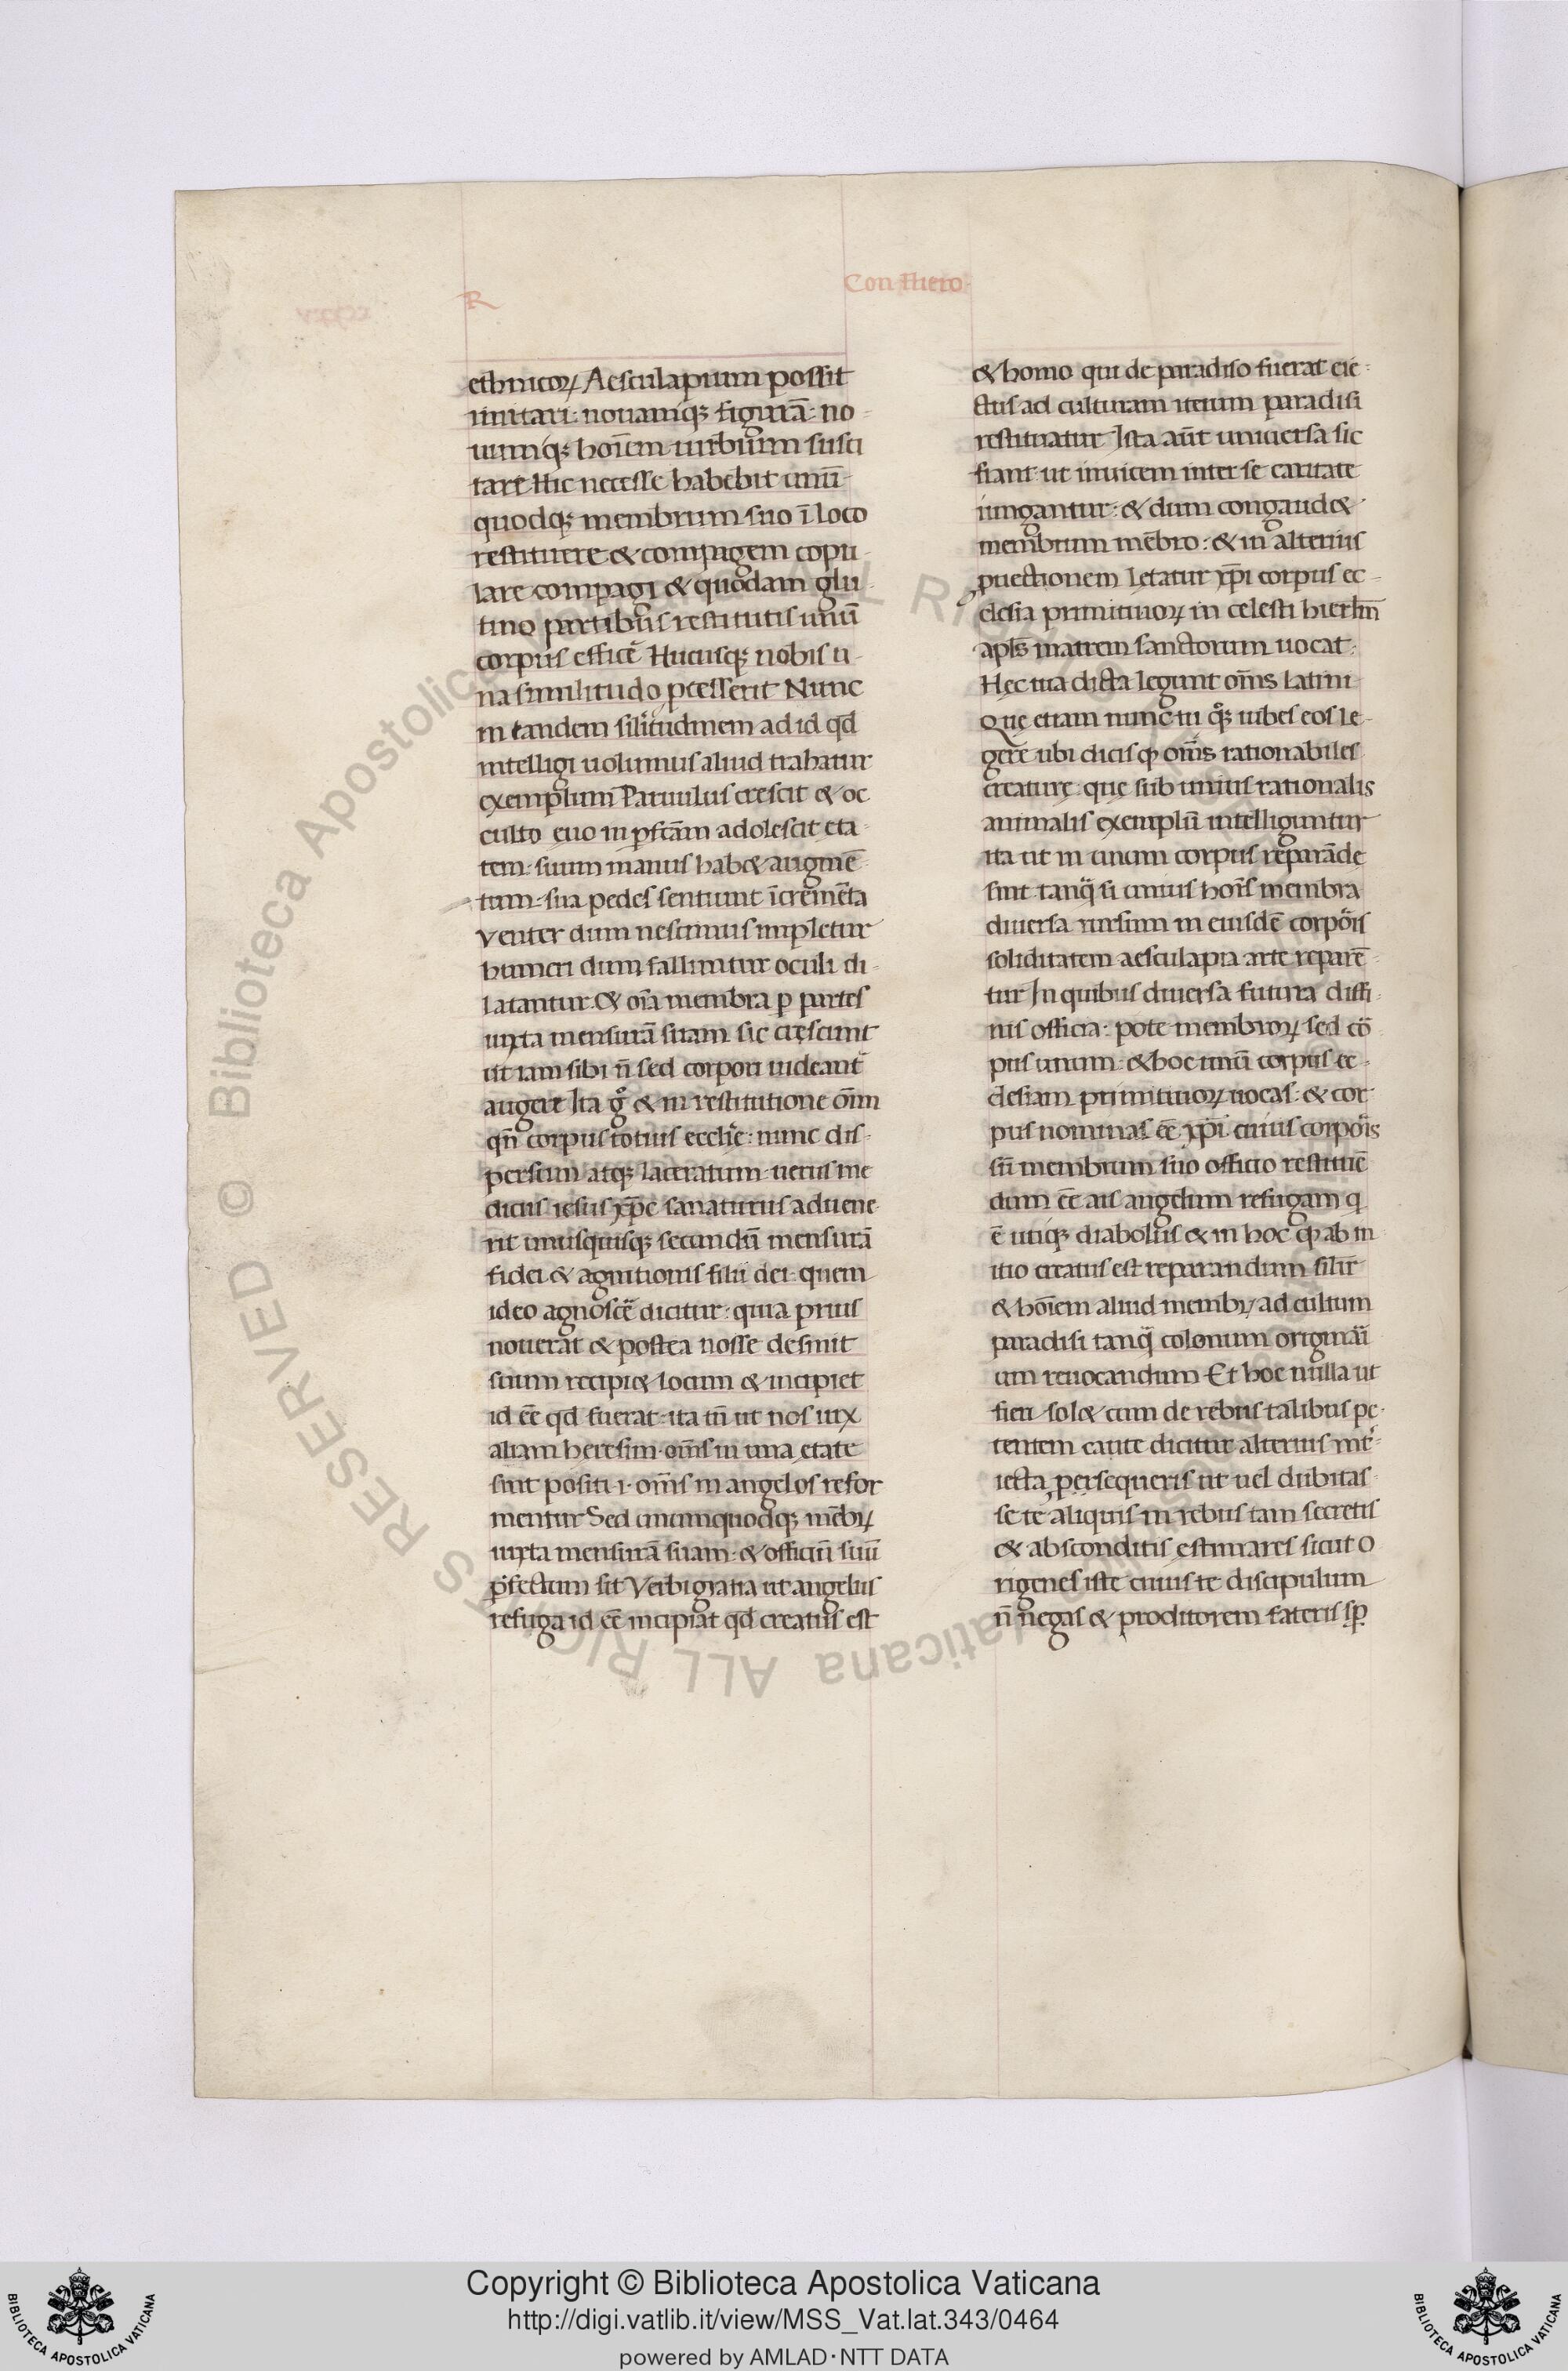 R
Con Hiero
ethnicoꝝ Aesculapium possit
imitari: nouamqꝫ figurā: no
uumqꝫ hoīem uirbium susci
tare Hic necesse habebit unū
quodqꝫ membrum suo ī loco
restituere & compagem copu
lare compagi & quodam glu
tino partibus restitutis unū
corpus efficē Hucusqꝫ nobis u
na similitudo p̄cesserit Nunc
in eandem sili͛tudinem ad id qd
intelligi uolumus aliud trahatur
exemplum Paruulus crescit & oc
culto euo in ꝑfctām adolescit eta
tem: suum manus hab& augmē
tum: sua pedes sentiunt īcremēta
Venter dum nescimus impletur
humeri dum fallimur oculi di
latantur & oīa membra ꝑ partes
iuxta mensurā suam sic cręscunt
ut tam sibi ñ sed corpori uideant͛
augere Ita gͦ & in restitutione oīm
qñ corpus totius ecclīe: nunc dis
persum atqꝫ laceratum: uerus me
dicus iesus xp̄c sanaturus aduene
rit unusquisqꝫ secundū mensurā
fidei & agnitionis filii dei: quem
ideo agnoscē dicitur: quia prius
nouerat & postea nosse desinit
suum recipi& locum & incipiet
id eē qd fuerat: ita tñ ut nos iux
aliam heresim: oms in una etate
sint positi .i. oms in angelos refor
mentur Sed unumquodqꝫ mēbꝝ
iuxta mensurā suam: & officiū suū
ꝑfectum sit Verbi gratia ut angelus
refuga id eē incipiat qd creatus est
& homo qui de paradiso fuerat eie
ctus ad culturam iterum paradisi
restituatur Ista aūt uniuersa sic
fiant ut inuicem inter se caritate
iungantur: & dum congaud&
membrum mēbro: & in alterius
ꝓuectionem letatur xp̄i corpus ec
clesia primitiuoꝝ in celesti hierlm̄
apls̄ matrem sanctorum uocat:
Hęc tua dicta legunt om̄s latini
Quę etiam nunc tu qͦꝫ iubes eos le
gere ubi dicis ꝙ om̄s rationabiles
creaturę: quę sub unius rationalis
animalis exemplū intelliguntur
ita ut in unum corpus reparāde
sint tanq̄ si unius hoīs membra
diuersa rursum in eiusdē corpōis
soliditatem aesculapia arte reparē
tur In quibus diuersa futura diffi
nis officia: pote membroꝝ sed cō
pus unum: & hoc unū corpus ec
clesiam primitiuoꝝ uocas: & cor
pus nominas eē xp̄i cuius corpōis
sñ membrum suo officio restituē
dum eē ais angelum refugam q
ē utiqꝫ diabolus & in hoc ꝙ ab in
itio creatus est reparandum silīr
& hoīem aliud membꝝ ad cultum
paradisi tanq̄ colonum origināi
um reuocandum Et hoc nulla ut
fieri sol& cum de rebus talibus pe
tentem caute dicitur alterius int͛
iecta ꝑsequeris ut uel dubitas
se te aliquis in rebus tam secretis
& absconditis ęstimares sicut O
rigenes iste cuius te discipulum
ñ negas & proditorem fateris sꝑ
© Biblioteca Apostolica Vaticana ALL RIGHTS RESERVED
Copyright © Biblioteca Apostolica Vaticana
http://digi.vatlib.it/view/MSS_Vat.lat.343/0464
powered by AMLAD·NTT DATA
BIBLIOTECA APOSTOLICA VATICANA
BIBLIOTECA APOSTOLICA VATICANA